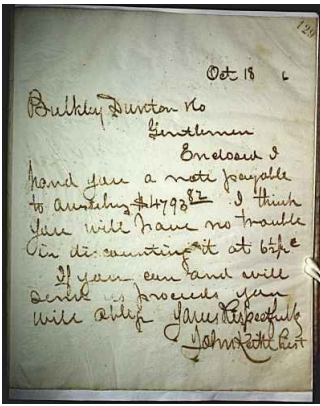 129
Oct 18 6
Bulkley Dunton & Co
Gentlemen
Enclosed I
hand you a note payable
to $4793 82 I think
you will have no trouble
in discounting it at 6½ pc
If you can and will
send us proceeds you
will oblige Yours Respectfully
John Keith